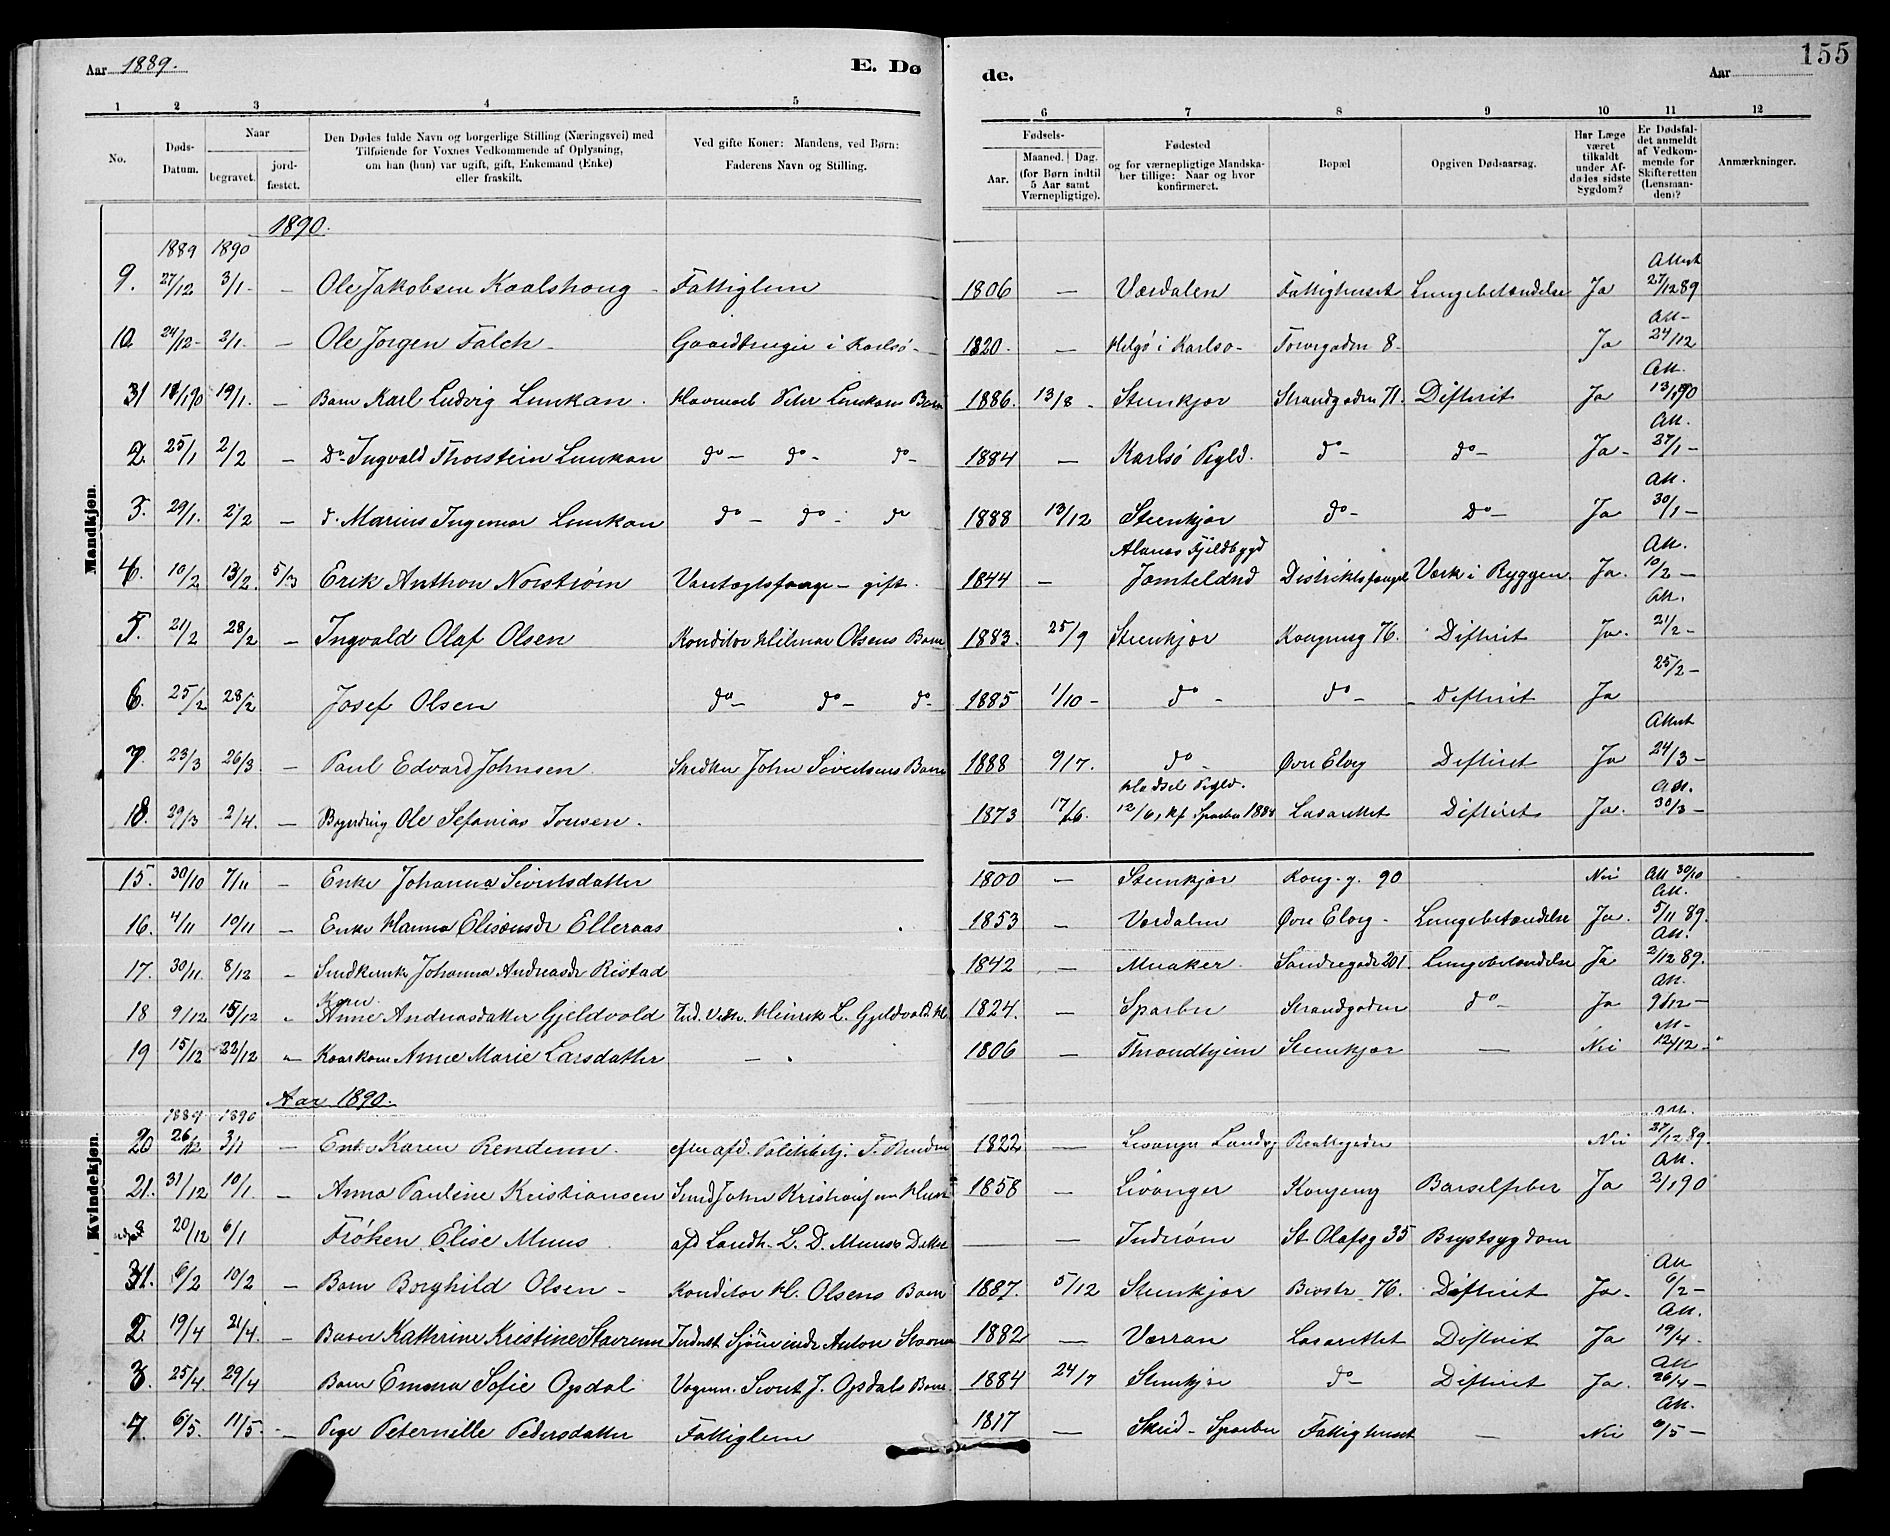 Aar 1889.
E. Dø
de.
Aar
155
1 2 3 4 5 6 7 8 9 10 11 12
No.
Døds-
Datum.
Naar
begravet.
jord-
fæstet.
Den Dødes fulde Navn og borgerlige Stilling (Næringsvei) med
Tilføiende for Voxnes Vedkommende af Oplysning,
om han (hun) var ugift, gift, Enkemand (Enke)
eller fraskilt.
Ved gifte Koner: Mandens, ved Børn:
Faderens Navn og Stilling.
Fødsels-
Aar.
Maaned. Dag.
(for Børn indtil
5 Aar samt
Værnepligtige).
Fødested
og for værnepligtige Mandska-
ber tillige: Naar og hvor
konfirmeret.
Bopæl
Opgiven Dødsaarsag.
Har Læge
været
tilkaldt
under Af-
dødes sidste
Sygdom?
Er Dødsfal-
det anmeldt
af Vedkom-
mende for
Skifteretten
(Lensman-
den)?
Anmærkninger.
Mandkjøn.
1890.
1889 1890
9. 27/12 3/1 - — Ole Jakobsen Kaalshong - Fattiglem 1806 — Værdalen Fattighuset Lungebetændelse Ja Attest 27/12 89
10 24/12- 2/1. — Ole Jørgen Falch - Gaardbruger i Karlsø - 1820. — Helgø i Karlsø - 8. Ja Att- 24/12
31 19/1. — Barn Karl Ludvig Lunkan. Lunkans Barn 1886. 13/8 - Stenkjær Strandgaden 71. Difterit Ja Att. 13/1 90
2. 25/1 2/2 — Do Ingvald Thorstein Lunkan do — do - do - 1884 — Karlsø Pgld. do - do - Ja - Att. 27/1 —
3. 29/1. 2/2 — d. Marius Ingemar Lunkan do — do - do 1888 13/12 Steenkjær do - Do — Ja Att. 30/1 —
4. 10/2 13/2. 5/3 Erik Anthon Norstrøm Varetægtsfange — gift. 1844 — Alanæs Fjeldbygd Jæmteland Distriktsfængsl Værk i Ryggen. Ja. Att. 10/2 —
5. 21/2 28/2 — Ingvald Olaf Olsen Konditor Hilmar Olsens Barn 1883. 25/9 Steenkjær Kongensg 76. Difterit Ja. Att. 21/2 -
6. 25/2 28/2 Josef Olsen do — do — do - 1885 1/10 - do - do - Difterit Ja 25/2 -
7. 23/3 26/3 — Paul Edvard Johnsen Snedker John Sivertsens Barn 1888 9/7. do - Øvre Elvg Difterit Ja Attest 24/3 —
18. 29/3 2/4. — Ole Sefanias Jonsen. 1873 17/6. Hadsel Pgld. 12/6, kf Sparbu 1888 Lasarettet Difterit Ja. Att. 30/3 —
Kvindekjøn.
15. 30/10 7/11 — Enke Johanna Sivertsdatter 1800 — Steenkjær Kong. g. 90 Nei Att 30/10
16. 4/11 10/11 — Enke Hanna Eliseusdr Elleraas 1853 — Værdalen Øvre Elvg - Lungebetændelse Ja. Att. 5/11 89.
17. 30/11. 8/12 — Johanna Andreasdr Ristad 1842 — Snaker Søndregade 201. Lungebetændelse Ja Att. 2/12 89.
18 9/12 15/12 - Kone Anne Andreasdatter Gjeldvold Henrik L. Gjeldvold 1824. — Sparbu Strandgaden do - Ja Att. 9/12 —
19 15/12 22/12 - Anne Marie Larsdatter — 1806 — Throndhjem Steenkjær — Nei 12/12 -
Aar 1890.
1889 1890
20 26/12 3/1 — Enke Karen Rendum. efter afd. Politibetj. 1822 — Nei Att. 27/12 89.
21. 31/12 10/1. — Anna Pauline Kristiansen Smed John Kristiansen 1858 — Levanger Kongensg Barselfeber Ja Att. 2/1 90
20/12 6/1 Frøken Elise Muus afd Landh. L. D. Muuss Datter — — Inderøen St Olafsg 35 Brystsygdom
31. 6/2 10/2 — Barn Borghild Olsen - Konditor H. Olsens Barn 1887. 5/12 Steenkjær 76. Difterit Ja. Att 6/2 —
2. 19/4 21/4. — Barn Kathrine Kristine Stavrum Anton 1882 — Værran Lasarettet Difterit Ja Att. 19/4.
3. 25/4. 29/4 Barn Emma Sofie Opdal Vognm. Sivert J. Opdals Barn 1884 24/7 Steenkjær do - Difterit Ja. Att 26/4 —
4. 6/5. 11/5. — Pige Peternille Pedersdatter Fattiglem 1817 — Skeid - Sparbu Fattighuset — Nei Att. 6/5 —